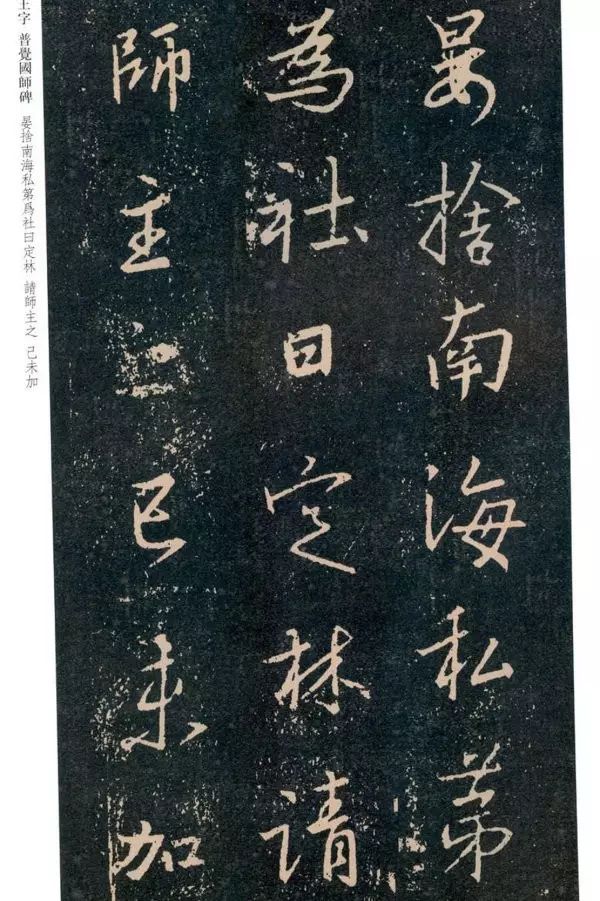 晏捨南海私苐
為社曰定林請
師主之己未加
王字 普覺國師碑 晏捨南海私第爲社曰定林 請師主之 己未加